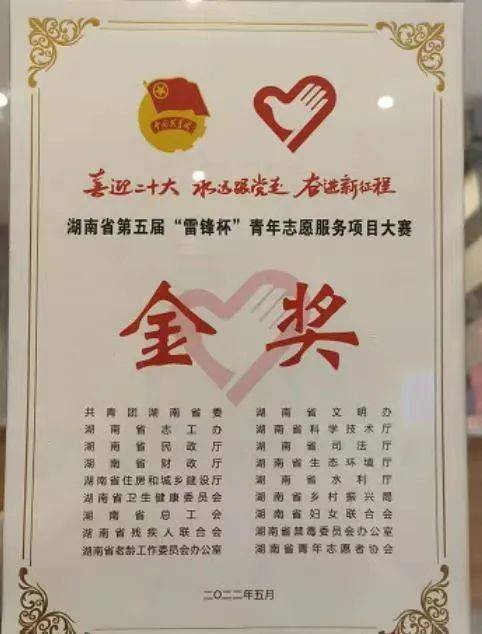 中国共青团
喜迎二十大 永远跟党走 奋进新征程
湖南省第五届“雷锋杯”青年志愿服务项目大赛
金奖
共青团湖南省委 湖南省文明办
湖南省志工办 湖南省科学技术厅
湖南省民政厅 湖南省司法厅
湖南省财政厅 湖南省生态环境厅
湖南省住房和城乡建设厅 湖南省水利厅
湖南省卫生健康委员会 湖南省乡村振兴局
湖南省总工会 湖南省妇女联合会
湖南省残疾人联合会 湖南省禁毒委员会办公室
湖南省老龄工作委员会办公室 湖南省青年志愿者协会
二〇二二年五月